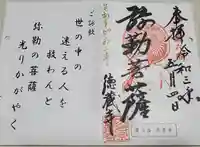 奉拝
令和三年
五月四日
弥勒菩薩
徳蔵寺
ご詠歌
世の中の
迷える人を
救わんと
弥勒の菩薩
光りかがやく